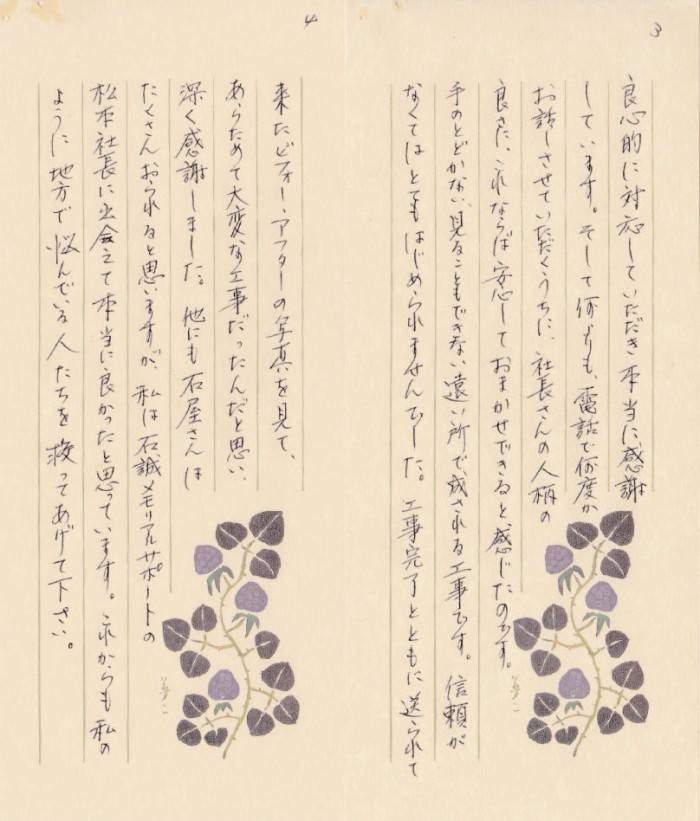 3
良心的に対応していただき本当に感謝
しています。そして何よりも、電話で何度か
お話しさせていただくうちに、社長さんの人柄の
良さに、これならば安心しておまかせできると感じたのです。
手のとどかない、見ることもできない遠い所で、成される工事です。信頼が
なくてはとてもはじめられませんでした。工事完了とともに送られて
4
来たビフォー・アフターの写真を見て、
あらためて大変な工事だったんだと思い、
深く感謝しました。他にも石屋さんは
たくさんおられると思いますが、私は石誠メモリアルサポートの
松本社長に出会えて本当に良かったと思っています。これからも私の
ように地方で悩んでいる人たちを救ってあげて下さい。